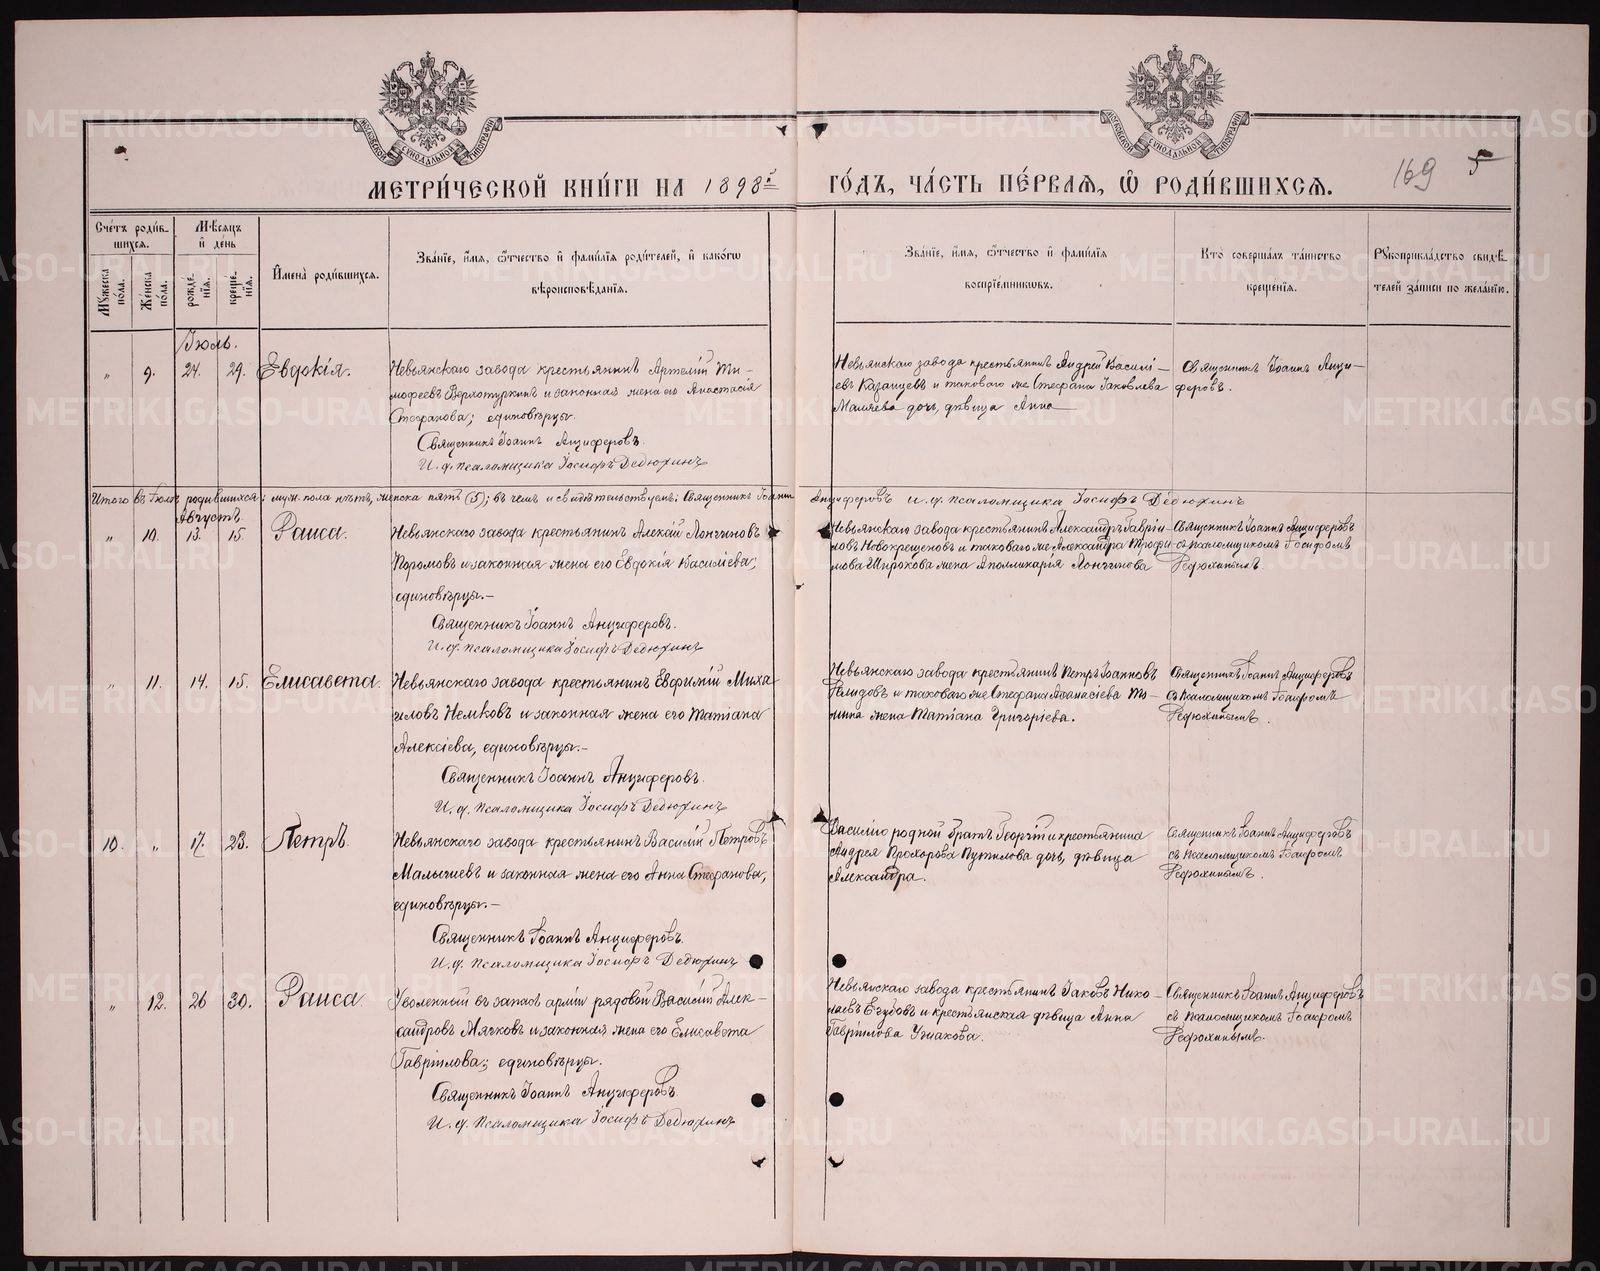 МОСКОВСКОЙ СѴНОДАЛЬНОЙ ТИПОГРАФІИ
МОСКОВСКОЙ СѴНОДАЛЬНОЙ ТИПОГРАФІИ
МЕТРИ́ЧЕСКОЙ КНИ́ГИ НА 1898й ГО́ДЪ, ЧА́СТЬ ПЕ́РВАЯ, Ѽ РОДИ́ВШИХСЯ.
169 5
Сче́тъ роди́в-
шихся.
Мꙋжеска по́ла.
Же́нска по́ла.
Мѣ́сяцъ
и҆ де́нь
рожде́-
нїя.
креще́-
нїя.
И҆мена̀ роди́вшихся.
Зва́нїе, и҆́мя, ѻ҆́тчество и҆ фамі́лїя роди́телей, и҆ како́гѡ
вѣроисповѣ́данїя.
Зва́нїе, и҆́мя, ѻ҆́тчество и҆ фамі́лїя
воспрїе́мникѡвъ.
Кто̀ соверша́лъ та́инство
креще́нїя.
Рꙋкоприкла́дство свидѣ́-
телей за́писи по жела́нїю.
Іюль.
„ 9. 24. 29. Евдокія.
Невьянскаго завода крестьянинъ Артемій Ти-
мофеевъ Верхотуркинъ и законная жена его Анастасія
Стефанова; единовѣрцы.
Священникъ Іоаннъ Анциферовъ.
И. д. псаломщика Іосифъ Дедюхинъ
Невьянскаго завода крестьянинъ Андрей Василі-
евъ Казанцевъ и таковаго же Стефана Іаковлева
Маляева дочь, дѣвица Анна
Священникъ Іоаннъ Анци-
феровъ.
Итого въ Іюлѣ родившихся: муж. пола нѣтъ, женска пять (5); въ чемъ и свидѣтельствуемъ: Священникъ Іоаннъ Анциферовъ И. д. псаломщика Іосифъ Дедюхинъ
Августъ
„ 10. 13. 15. Раиса.
Невьянскаго завода крестьянинъ Алексій Лонгиновъ
и законная жена его Евдокія Василіева;
единовѣрцы.-
Священникъ Іоаннъ Анциферовъ.
И. д. псаломщика Іосифъ Дедюхинъ
Невьянскаго завода крестьянинъ Александръ Гаврі-
ловъ Новокрещеновъ и таковаго же Александра Трофи-
мова Широкова жена Аполлинарія Лонгинова
Священникъ Іоаннъ Анциферовъ
съ псаломщикомъ Іосифомъ
Дедюхинымъ.
„ 11. 14. 15. Елисавета.
Невьянскаго завода крестьянинъ Евфимій Миха
иловъ Немковъ и законная жена его Татіана
Алексіева, единовѣрцы.-
Священникъ Іоаннъ Анциферовъ.
И. д. псаломщика Іосифъ Дедюхинъ
Невьянскаго завода крестьянинъ Петръ Іоанновъ
и таковаго же Стефана Аѳанасіева Ти-
жена Татіана Григоріева.
Священникъ Іоаннъ Анциферовъ
съ псаломщикомъ Іосифомъ
Дедюхинымъ.
10. „ 17. 23. Петръ.
Невьянскаго завода крестьянинъ Василій Петровъ
Малыгиевъ и законная жена его Анна Стефанова,
единовѣрцы.-
Священникъ Іоаннъ Анциферовъ.
И. д. псаломщика Іосифъ Дедюхинъ
Василію родной братъ Георгій и крестьянина
Андрея Прохорова Путилова дочь, дѣвица
Александра.
Священникъ Іоаннъ Анциферовъ
съ псаломщикомъ Іосифомъ
Дедюхинымъ.
„ 12. 26 30. Раиса.
Уволенный въ запасъ арміи рядовой Василій Алек-
сандровъ Мягковъ и законная жена его Елисавета
Гавріилова; единовѣрцы.
Священникъ Іоаннъ Анциферовъ
И. д. псаломщика Іосифъ Дедюхинъ
Невьянскаго завода крестьянинъ Іаковъ Нико-
лаевъ Егубовъ и крестьянская дѣвица Анна
Гавріилова Ушакова.
Священникъ Іоаннъ Анциферовъ
съ псаломщикомъ Іосифомъ
Дедюхинымъ.
METRIKI.GASO-URAL.RU